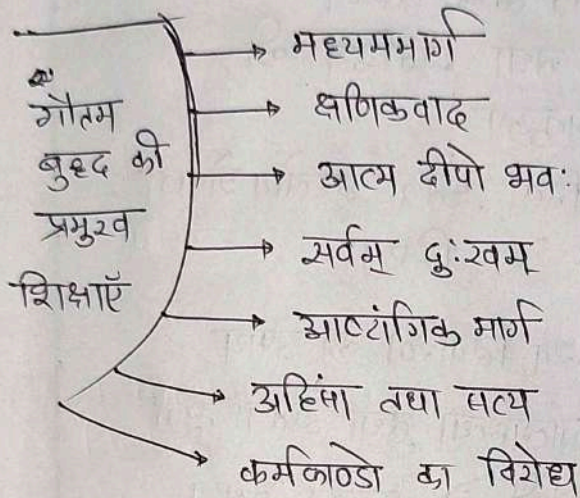 गौतम
बुद्ध की
प्रमुख
शिक्षाएँ
मध्यममार्ग
क्षणिकवाद
आत्म दीपो भवः
सर्वम् दुःखम्
आष्टांगिक मार्ग
अहिंसा तथा सत्य
कर्मकाण्डो का विरोध